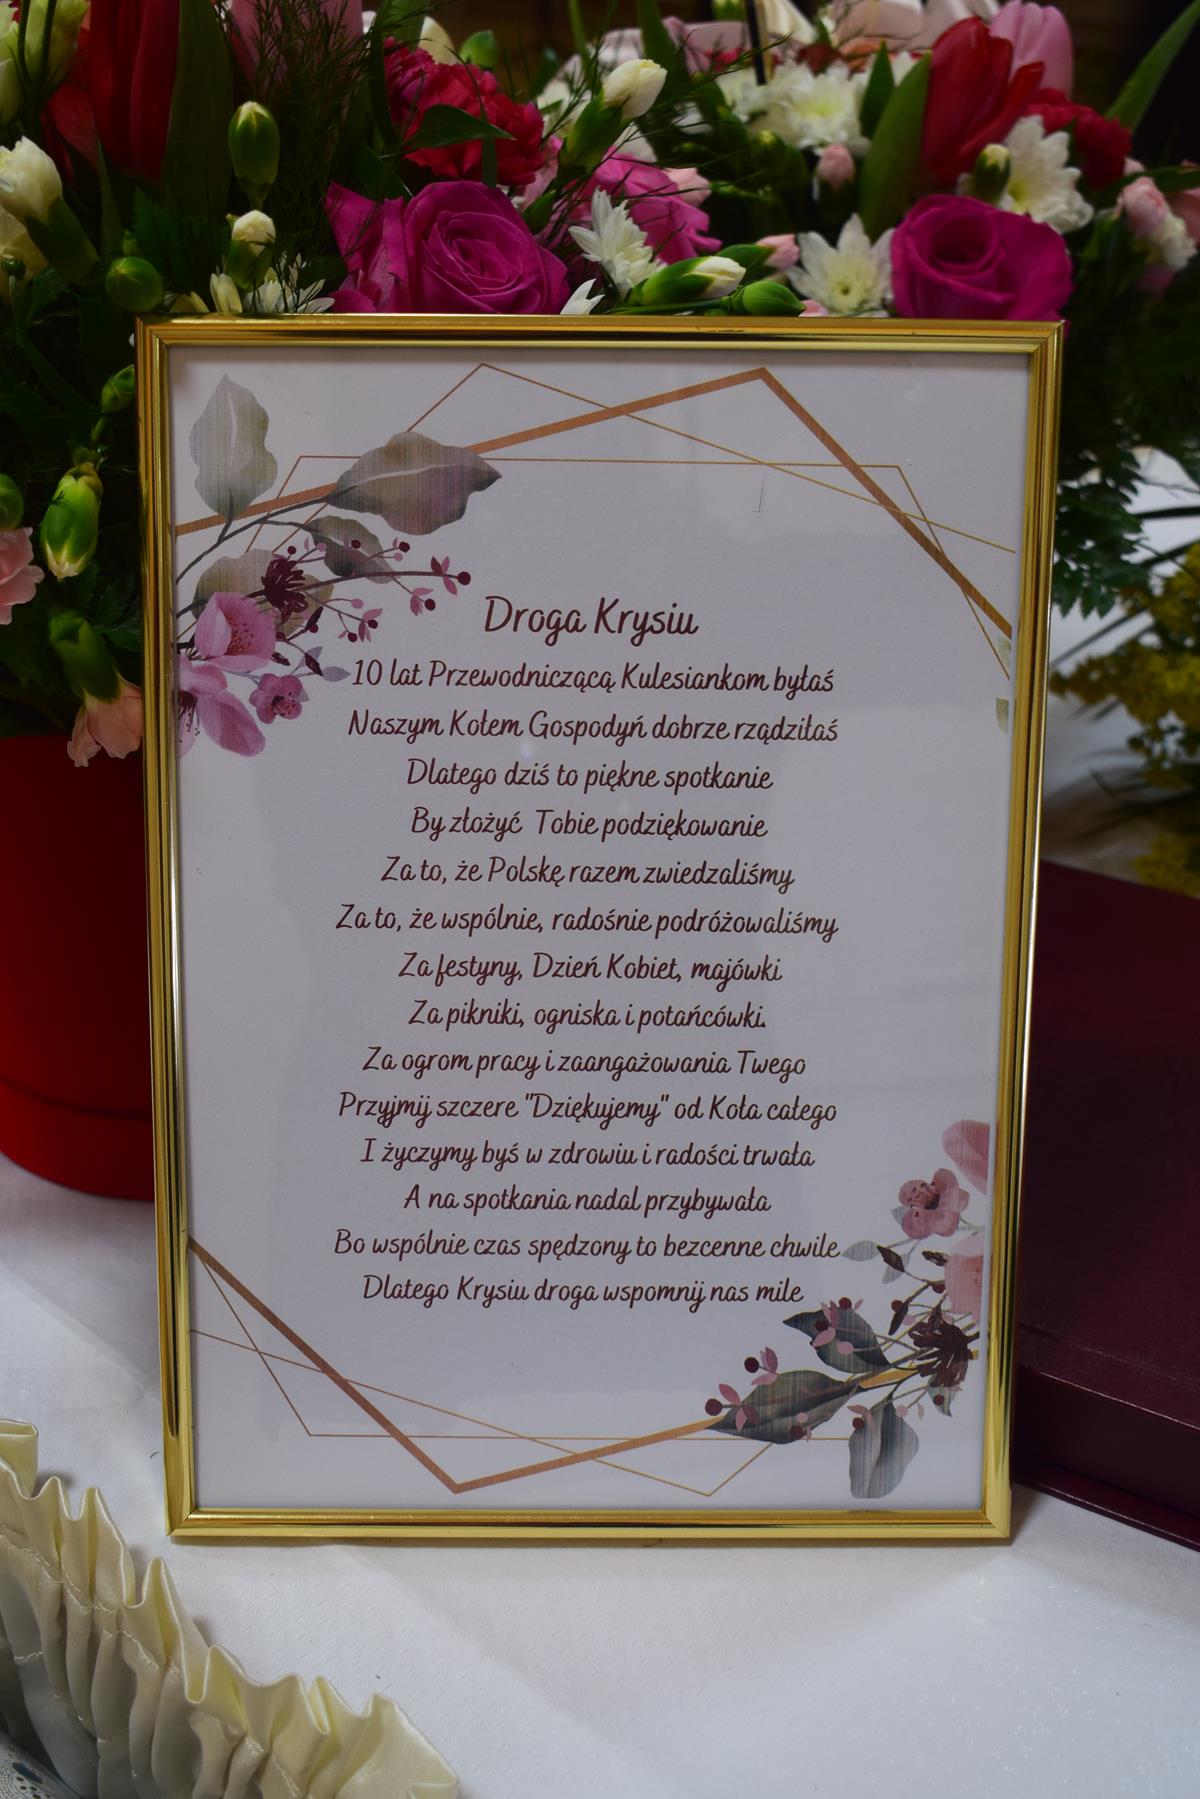 Droga Krysiu
10 lat Przewodniczącą Kulesiankom byłaś
Naszym Kołem Gospodyń dobrze rządziłaś
Dlatego dziś to piękne spotkanie
By złożyć Tobie podziękowanie
Za to, że Polskę razem zwiedzaliśmy
Za to, że wspólnie, radośnie podróżowaliśmy
Za festyny, Dzień Kobiet, majówki
Za pikniki, ogniska i potańcówki.
Za ogrom pracy i zaangażowania Twego
Przyjmij szczere "Dziękujemy" od Koła całego
I życzymy byś w zdrowiu i radości trwała
A na spotkania nadal przybywała
Bo wspólnie czas spędzony to bezcenne chwile
Dlatego Krysiu droga wspomnij nas mile